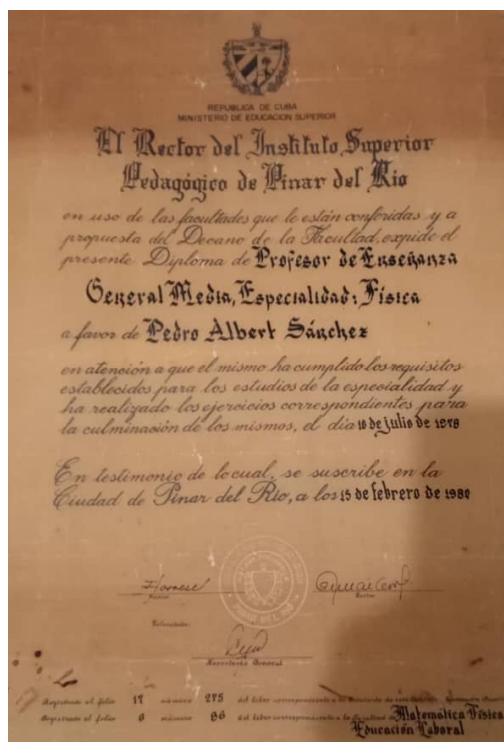 REPUBLICA DE CUBA
MINISTERIO DE EDUCACION SUPERIOR
El Rector del Instituto Superior
Pedagógico de Pinar del Río
en uso de las facultades que le están conferidas y a
propuesta del Decano de la Facultad, expide el
presente Diploma de Profesor de Enseñanza
General Media, Especialidad: Física
a favor de Pedro Albert Sánchez
en atención a que el mismo ha cumplido los requisitos
establecidos para los estudios de la especialidad y
ha realizado los ejercicios correspondientes para
la culminación de los mismos, el día de julio de
En testimonio de lo cual, se suscribe en la
Ciudad de Pinar del Río, a los 15 de febrero de 1980
Rector
Secretario General
Registrado al folio 17 número 275 del libro correspondiente a la
Registrado al folio número 86 del libro correspondiente a la Facultad de Matemática Física
Educación Laboral